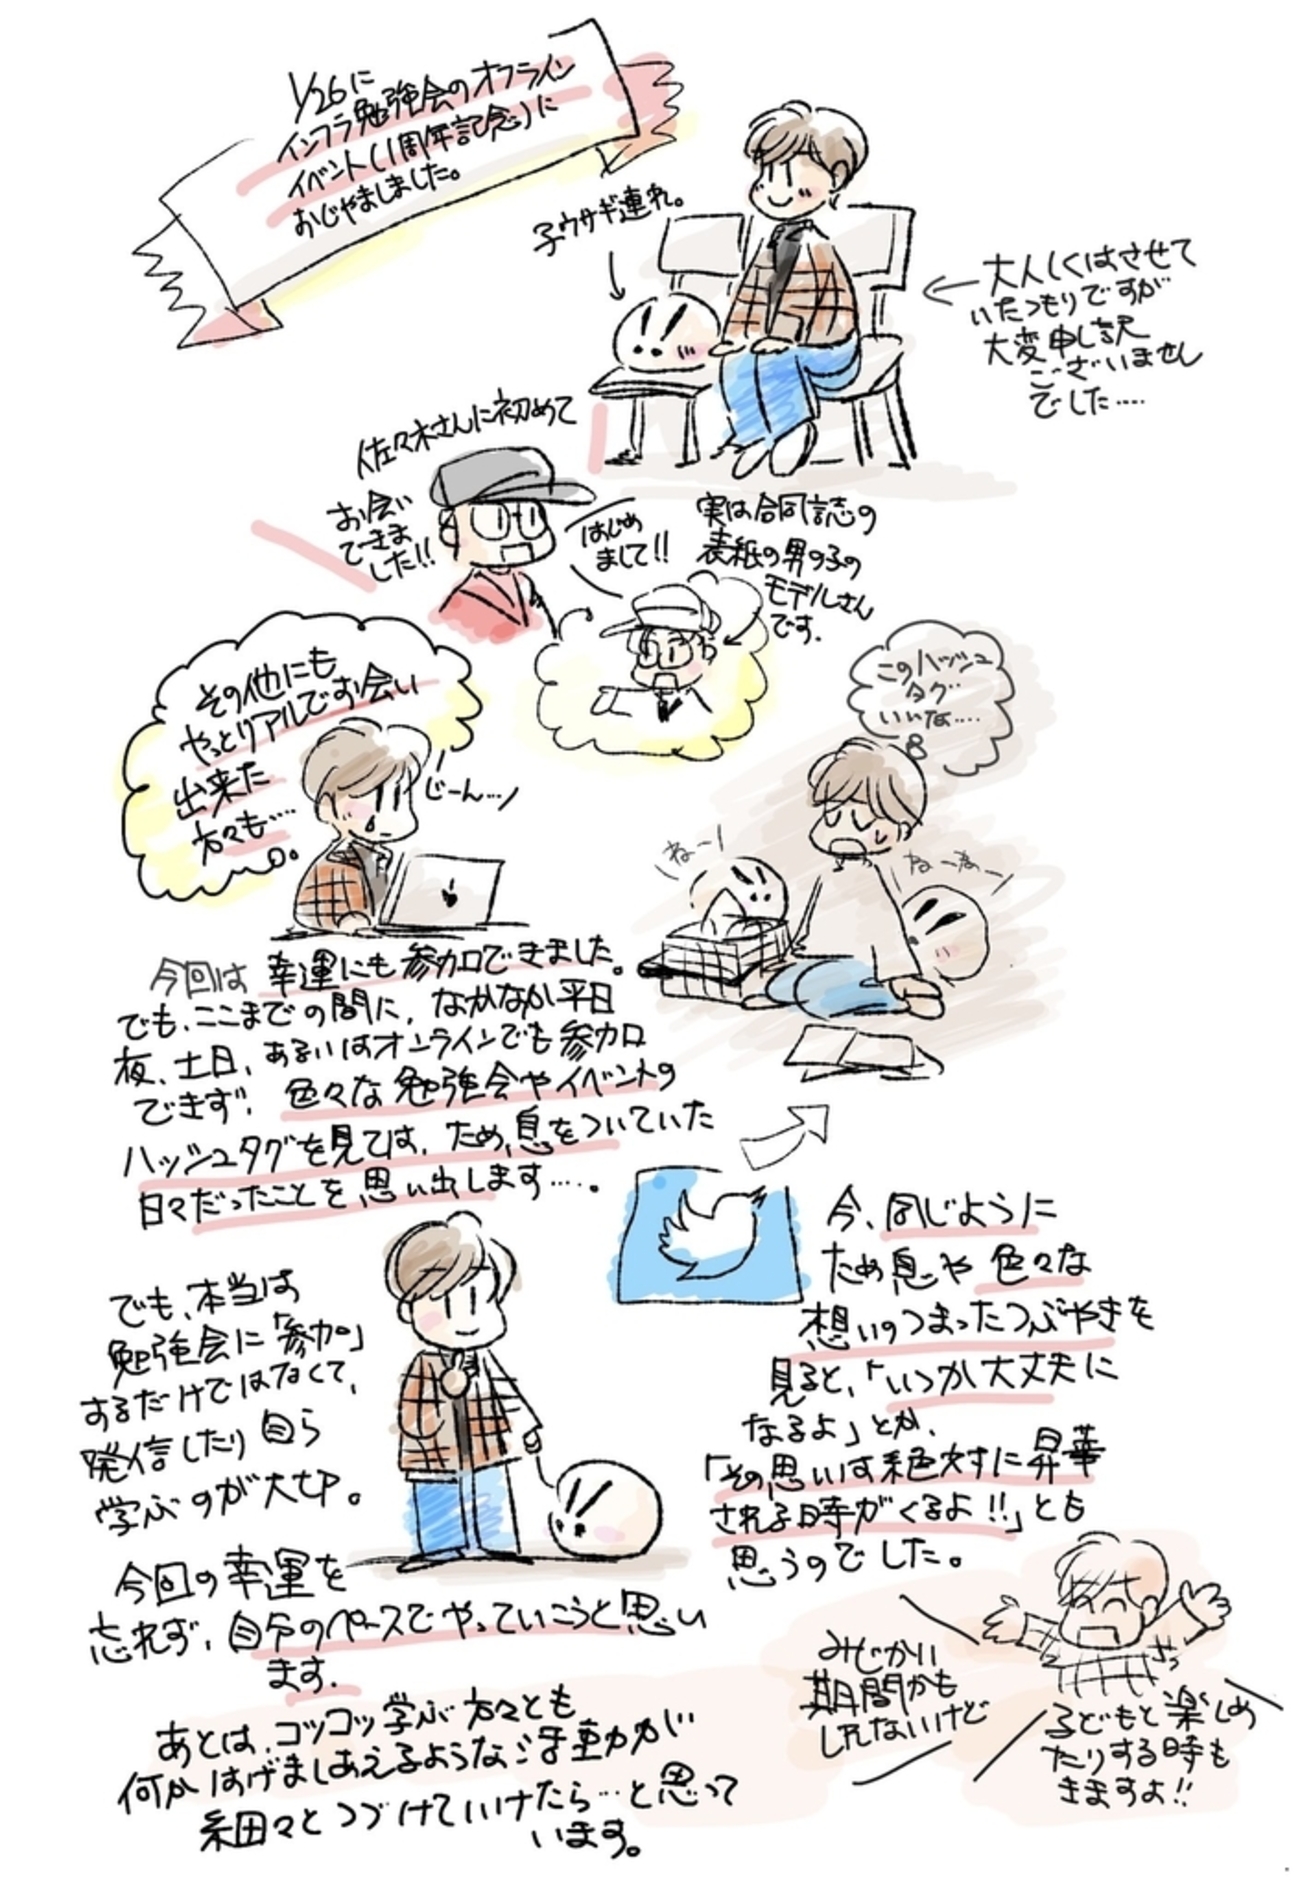 1/26に
インフラ勉強会のオフライン
イベント(1周年記念)に
おじゃましました。
子ウサギ連れ。
大人しくはさせて
いたつもりですが
大変申し訳
ございません
でした….
佐々木さんに初めて
お会い
できま
した!!
はじめ
まして!!
実は合同誌の
表紙の男の子の
モデルさん
です.
その他にも
やっとリアルでお会い
出来た
方々も….
じーん…
このハッシュ
タグ
いいな….
ねー
ねーねー
今回は 幸運にも参加できました。
でも、ここまでの間に、なかなか平日
夜、土日、あるいはオンラインでも参加
できず、色々な勉強会やイベントの
ハッシュタグを見ては、ため息をついていた
日々だったことを思い出します….。
今、同じように
ため息や色々な
想いのつまったつぶやきを
見ると、「いつか大丈夫に
なるよ」とか、
「その思いは絶対に昇華
される時がくるよ!!」とも
思うのでした。
でも、本当は
勉強会に「参加」
するだけではなくて、
発信したり自ら
学ぶのが大切。
今回の幸運を
忘れず、自分のペースでやっていこうと思い
ます.
あとは、コツコツ学ぶ方々とも
何かはげましあえるような活動が
細々とつづけていけたら…と思って
います。
みじかい
期間かも
しれないけど
子どもと楽しめ
たりする時も
きますよ!!